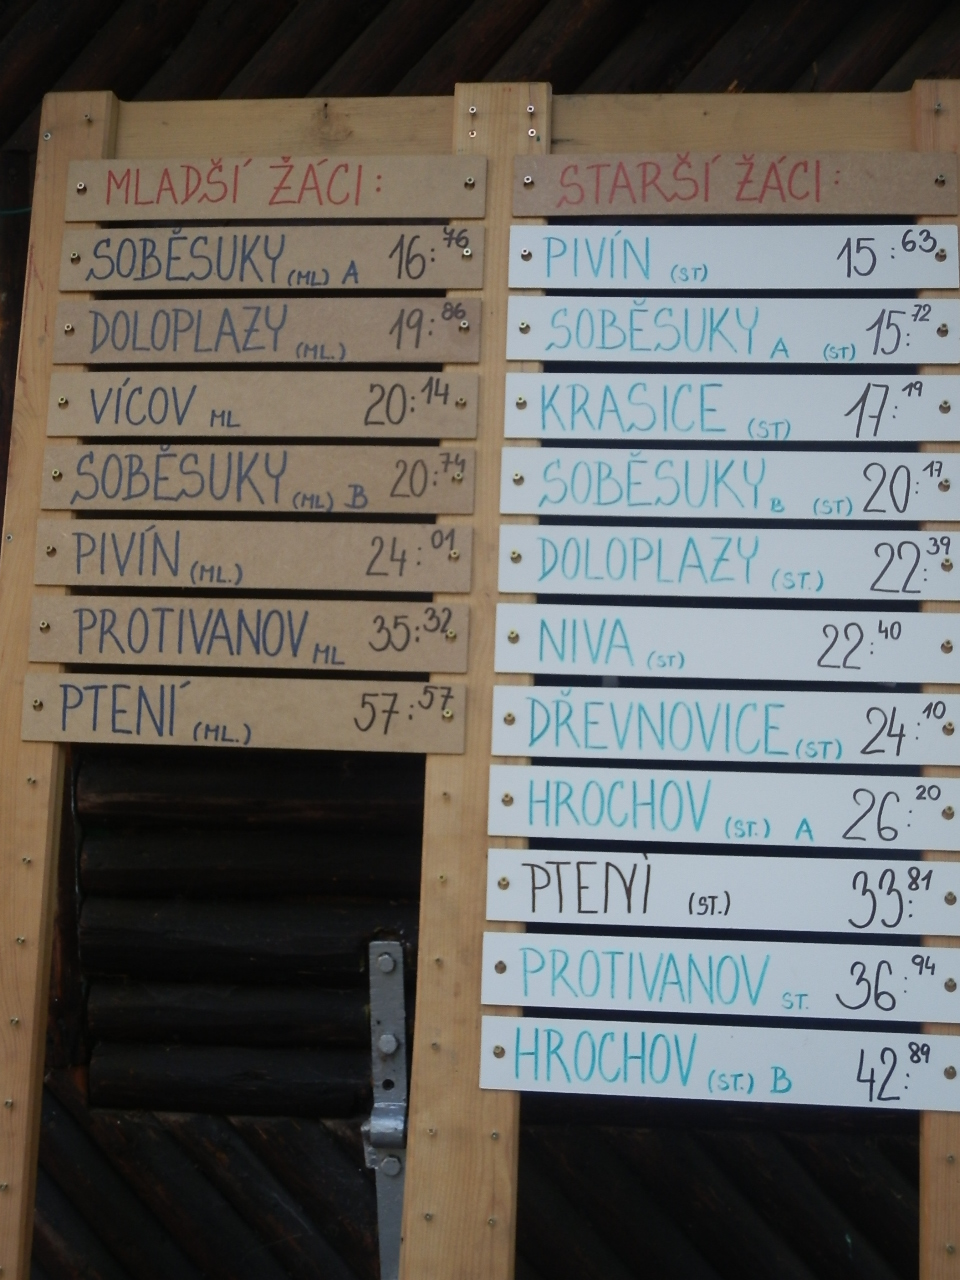 MLADŠÍ ŽÁCI:
SOBĚSUKY (ML) A 16:76
DOLOPLAZY (ML.) 19:86
VÍCOV ML 20:14
SOBĚSUKY (ML) B 20:74
PIVÍN (ML.) 24:01
PROTIVANOV ML 35:32
PTENÍ (ML.) 57:57
STARŠÍ ŽÁCI:
PIVÍN (ST) 15:63
SOBĚSUKY A (ST) 15:72
KRASICE (ST) 17:19
SOBĚSUKY B (ST) 20:17
DOLOPLAZY (ST.) 22:39
NIVA (ST) 22:40
DŘEVNOVICE (ST) 24:10
HROCHOV (ST.) A 26:20
PTENÍ (ST.) 33:81
PROTIVANOV ST. 36:94
HROCHOV (ST.) B 42:89